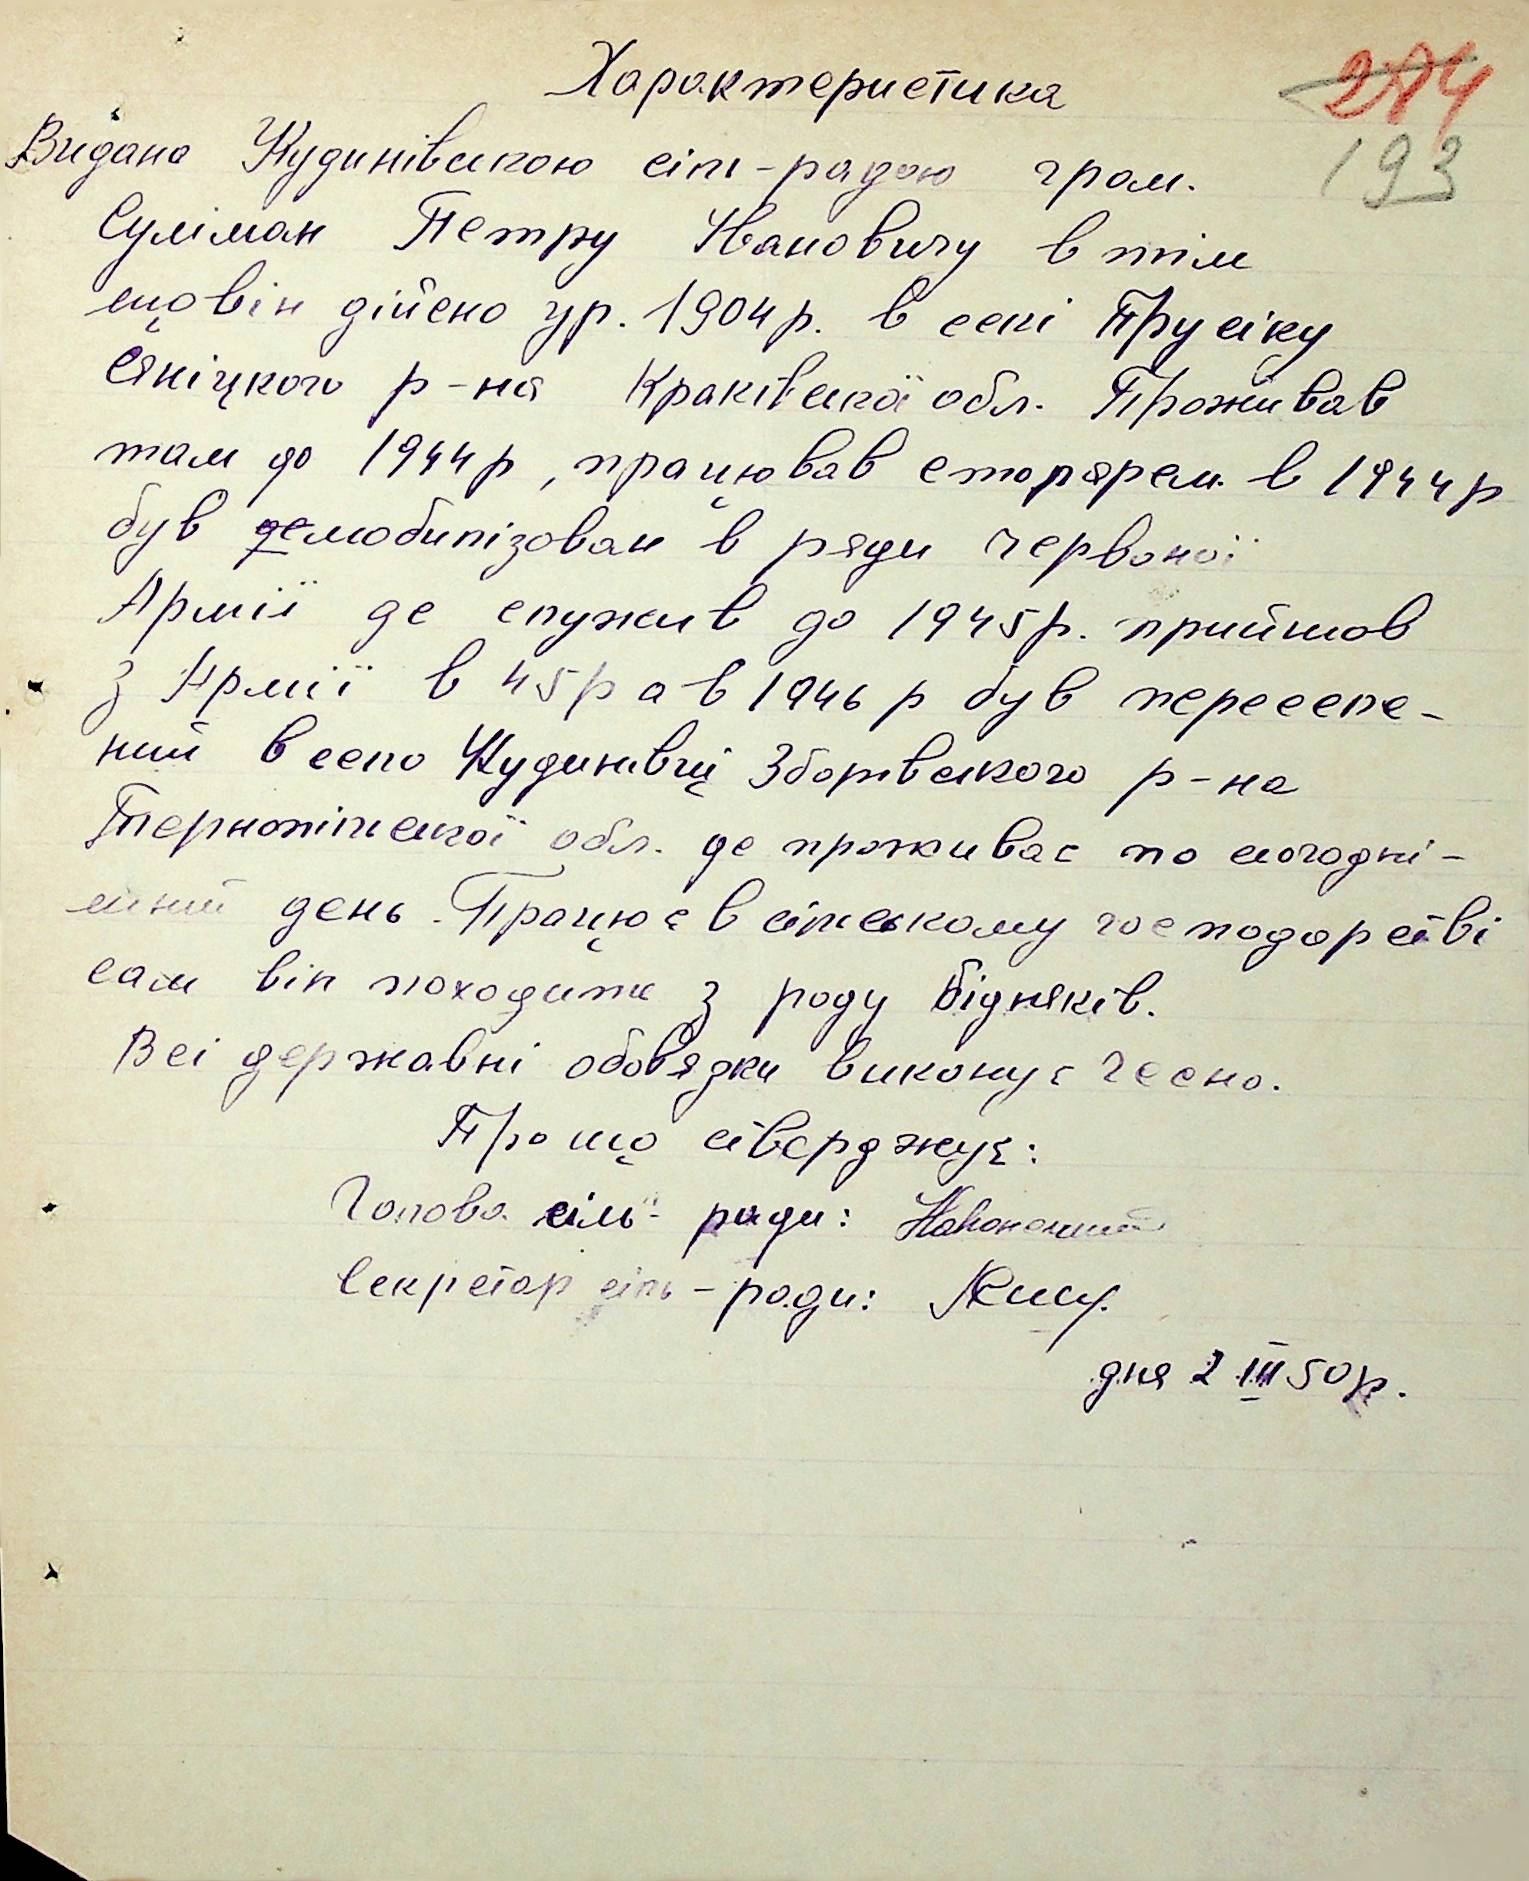 Характеристика
284
193
Видана Кудинівською сіль-радою гром.
Суліман Петру Івановичу в тім
що він дійсно ур. 1904 р. в селі Прусіку
Сяніцкого р-на Краківської обл. Проживав
там до 1944 р, працював столярем. в 1944 р
був демобилізован в ряди Червоної
Армії де служив до 1945 р. прийшов
з Армії в 45 р а в 1946 р був переселе-
ний в село Кудинівці Зборівського р-на
Тернопільської обл. де проживає по сьогодні-
шний день. Працює в сільському господарстві
сам він походить з роду бідняків.
Всі державні обовʼядки виконує чесно.
Про що стверджує:
Голова сіль-ради:
Секретар сіль-ради:
дня 2 III 50 р.